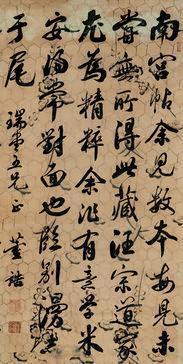 南宮帖余見數本每見未
嘗無所得此藏汪宗道家
尤為精粹余非有意學米
安得常對面也臨別漫書
于尾
瑞東五兄正
董誥